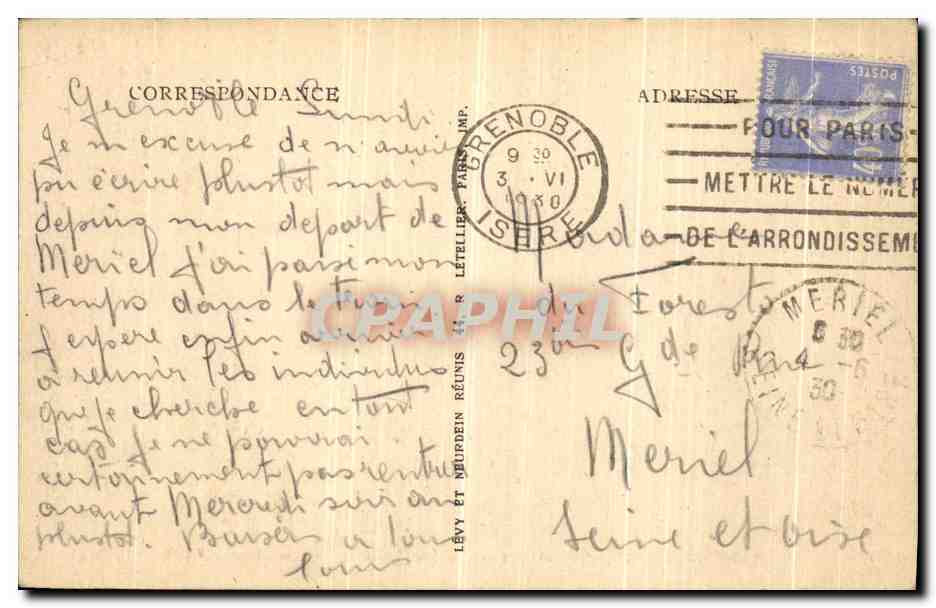 CORRESPONDANCE
Grenoble Lundi
Je m'excuse de n'avoir
pu écrire plustot mais
depuis mon depart de
Meriel j'ai passé mon
temps dans le train
J'espere enfin arriver
a reunir les individus
que je cherche en tout
cas je ne pourrai
certainement pas rentrer
avant Mercredi soir au
plustot. Baisers a tous
Louis
LÉVY ET NEURDEIN RÉUNIS 44, R LETELLIER. PARIS IMP.
ADRESSE
Madame
du Forest
23 bis Gde Rue
Meriel
Seine et oise
GRENOBLE
9 30
3 . VI
1930
ISERE
POUR PARIS
METTRE LE NUMER
DE L'ARRONDISSEME
POSTES
FRANÇAISE
40c
MERIEL
8 30
4 -6
30
CPAPHIL